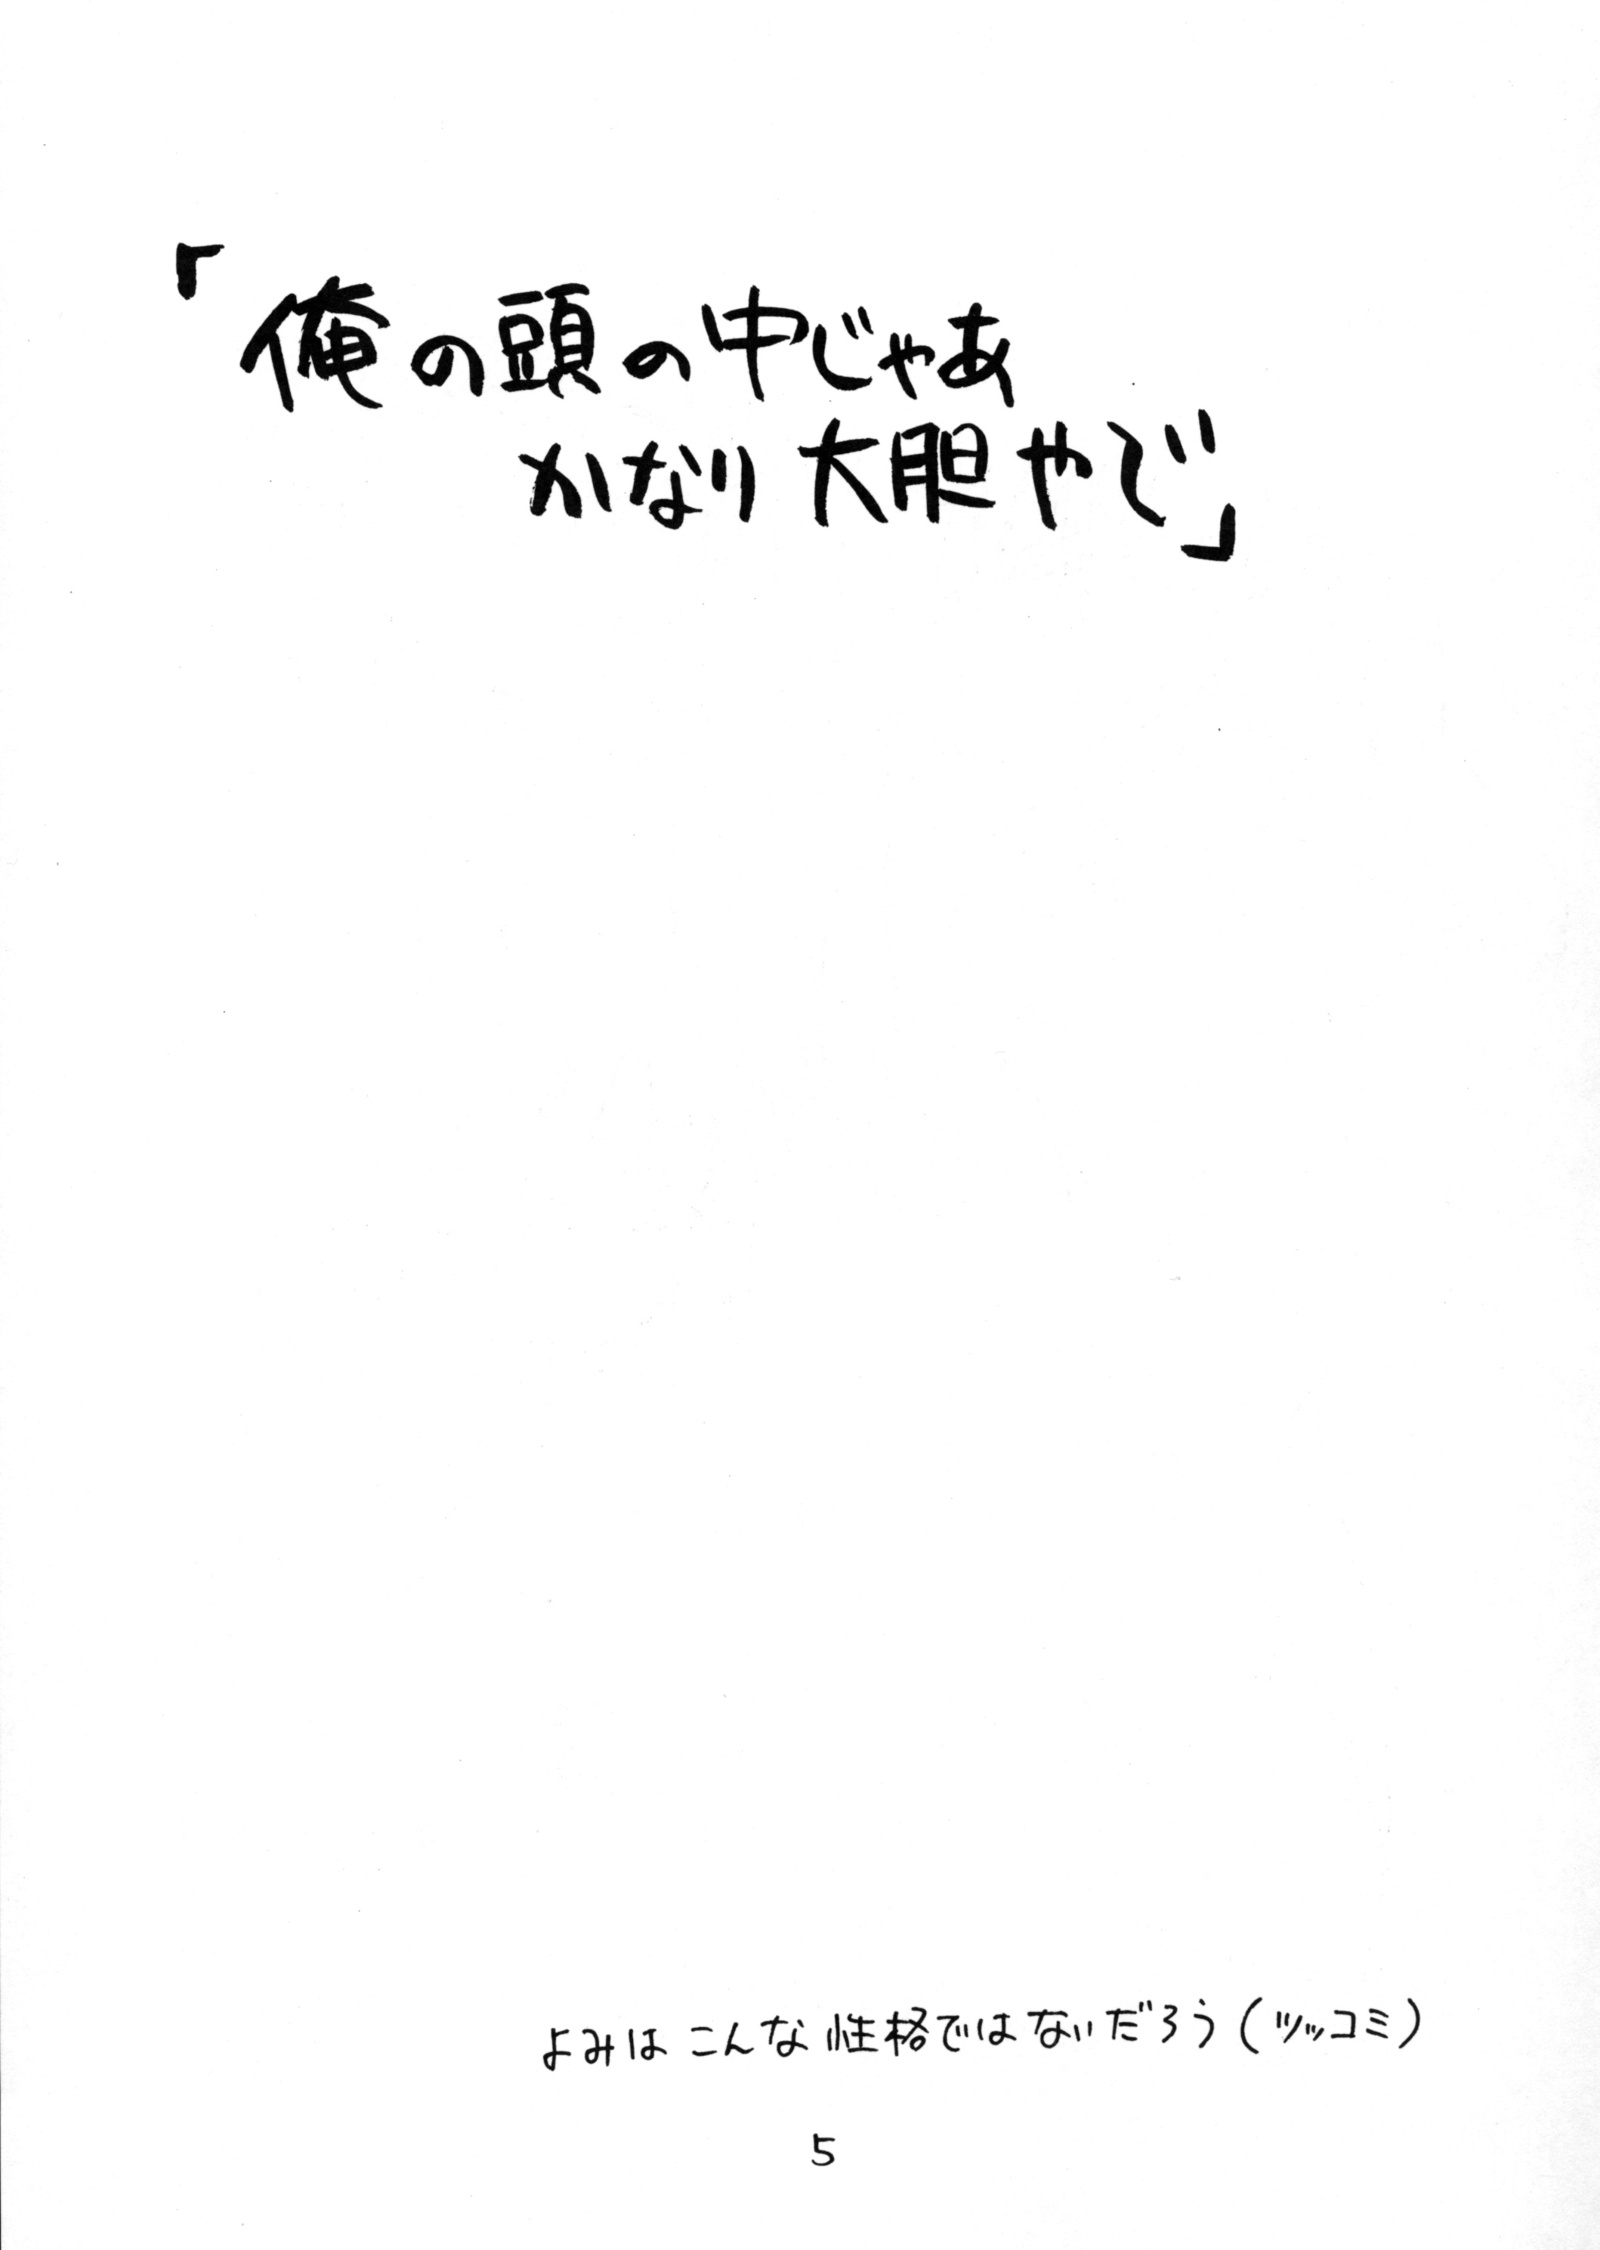 「俺の頭の中じゃあ
かなり大胆やで」
よみはこんな性格ではないだろう(ツッコミ)
5